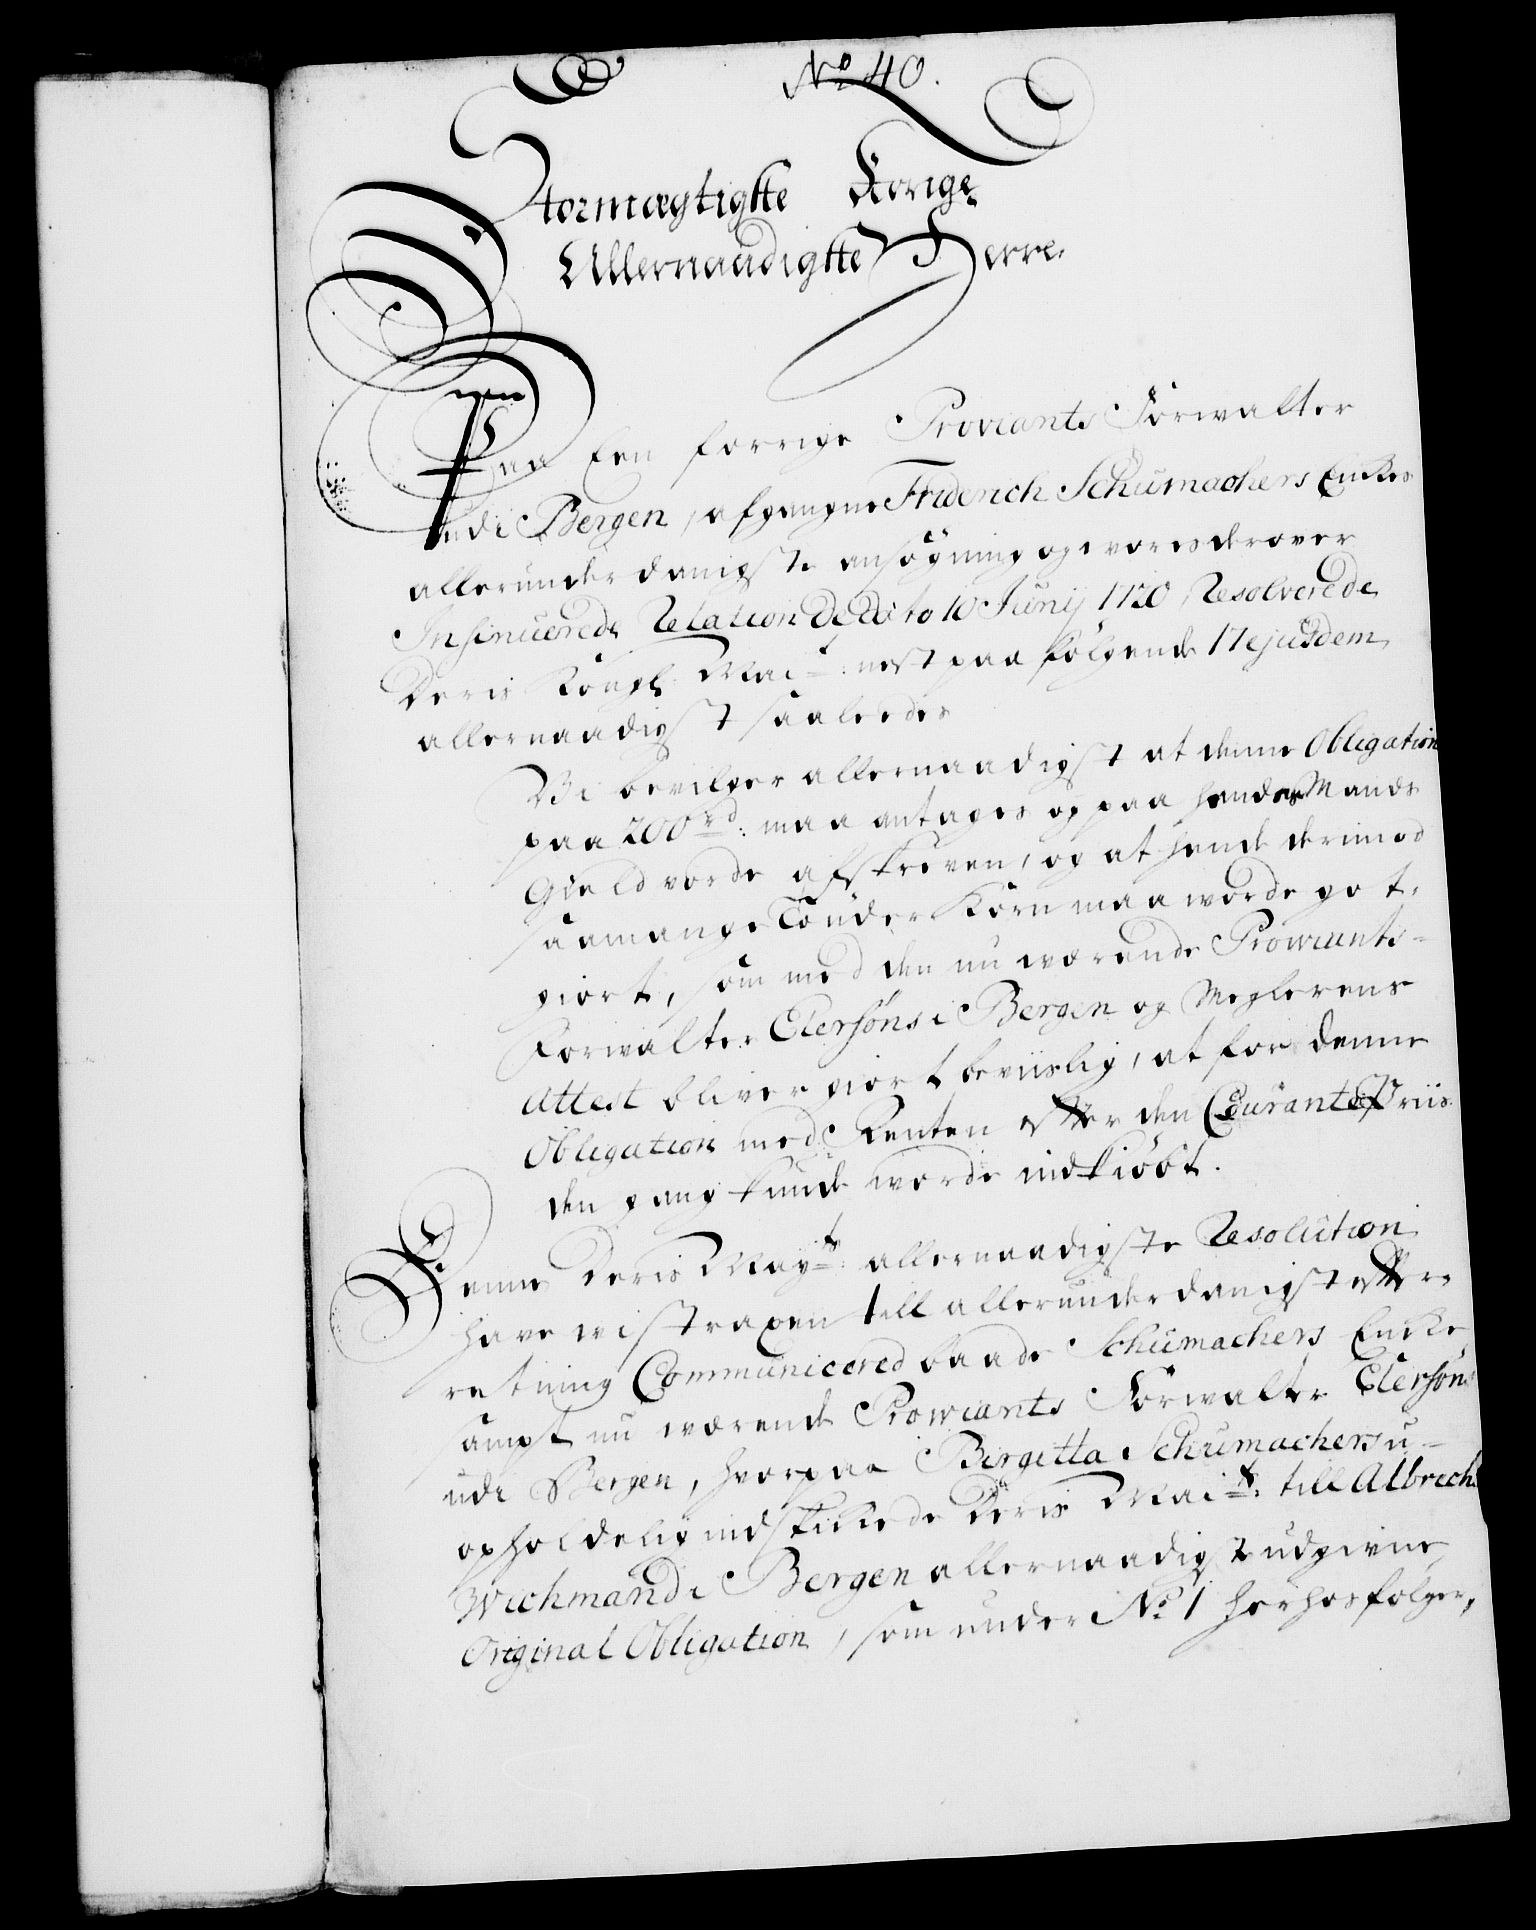 No 40.
Stormægtigste Konge
Allernaadigste Herre.
Paa Een forrige Proviants Forwalter
udi Bergen, afgangne Friderich Schumachers Enkes
allerunderdanigste ansøgning og vores derover
Insinuerede Relation De dato 10 Junij 1720, Resolverede
Deris Kongl: Mait: nest paa følgende 17 ejusdem
allernaadigst saaledes
Vi bevilger allernaadigst at denne Obligation
paa 200 rd: maa antages og paa hendes Mands
Gield vorde afskreven, og at hende derimod
saamange Tønder Korn maa worde got-
giort, som med den nu wærende Prowiants-
Forwalter Elersøns i Bergen og Meglerens
Attest bliver giort beviislig, at for denne
Obligation med Renten efter den Courante Priis
den gang kunde worde indkiøbt.
Denne Deris Mayts: allernaadigste Resolution
have wi straxen till allerunderdanigst efter-
retning Communicered baade Schumachers Enke
sampt nu wærende Prowiants Forwalter Elersøn
udi Bergen, hvorpaa Birgitta Schumachers u-
opholdelig indskikede Deris Maits: till Albrecht
Wichmand i Bergen allernaadigst udgivne
Original Obligation, som under No 1 herhos følger,